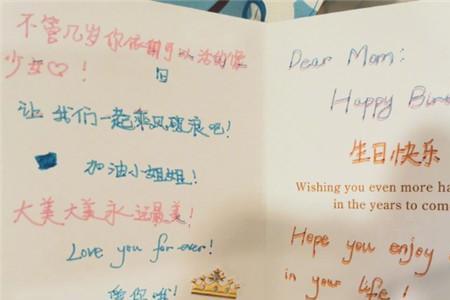 不管几岁你依旧可以活的像
少女♡!
让我们一起乘风破浪吧!
加油小姐姐!
大美大美永远最美!
Love you for ever!
Dear Mom:
Happy Birt
生日快乐
Wishing you even more ha
in the years to com
Hope you enjoy
in your life!